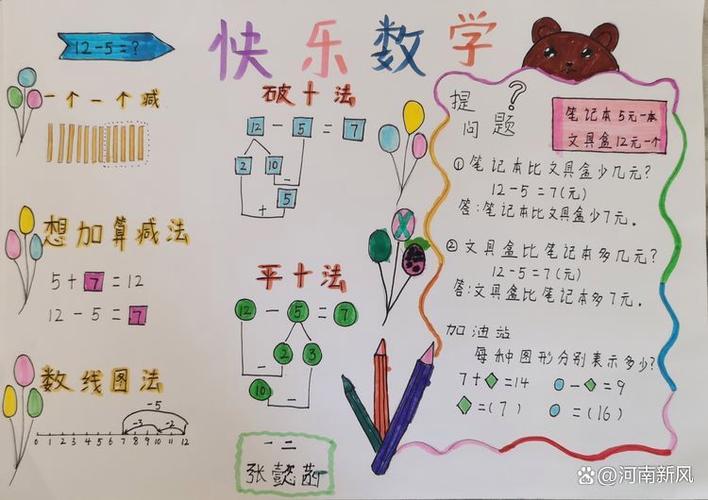 快乐数学
12-5=?
一个一个减
想加算减法
5+7=12
12-5=7
数线图法
-5
-3 -2
0 1 2 3 4 5 6 7 8 9 10 11 12
破十法
12 - 5 = 7
2 10
-
5
+
平十法
12 - 5 = 7
- 2 3
10 -
一二
提问题?
笔记本 5元一本
文具盒12元一个
①笔记本比文具盒少几元?
12-5=7(元)
答:笔记本比文具盒少7元。
②文具盒比笔记本多几元?
12-5=7(元)
答:文具盒比笔记本多7元。
加油站
每种图形分别表示多少?
7+◆=14 ●-◆=9
◆=(7) ●=(16)
@河南新风